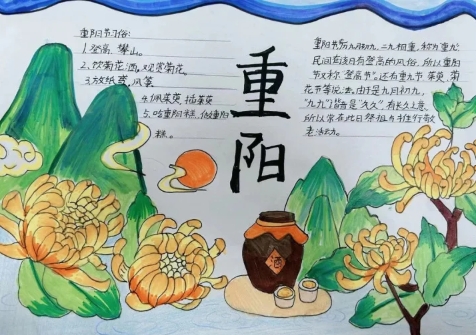 重阳节习俗:
1.登高、攀山。
2.饮菊花酒,观赏菊花。
3.放纸鸢,风筝
4.佩茱萸 插茱萸
5.吃重阳糕
。
重阳
重阳节为九月初九,二九相重,称为"重九"
民间在该日有登高的风俗,所以重阳
节又称"登高节"。还有重九节 茱萸、菊
花节等说法。由于是九月初九,
"九九"谐音是"久久"有长久之意,
所以常在此日祭祖与推行敬
老活动。
酒